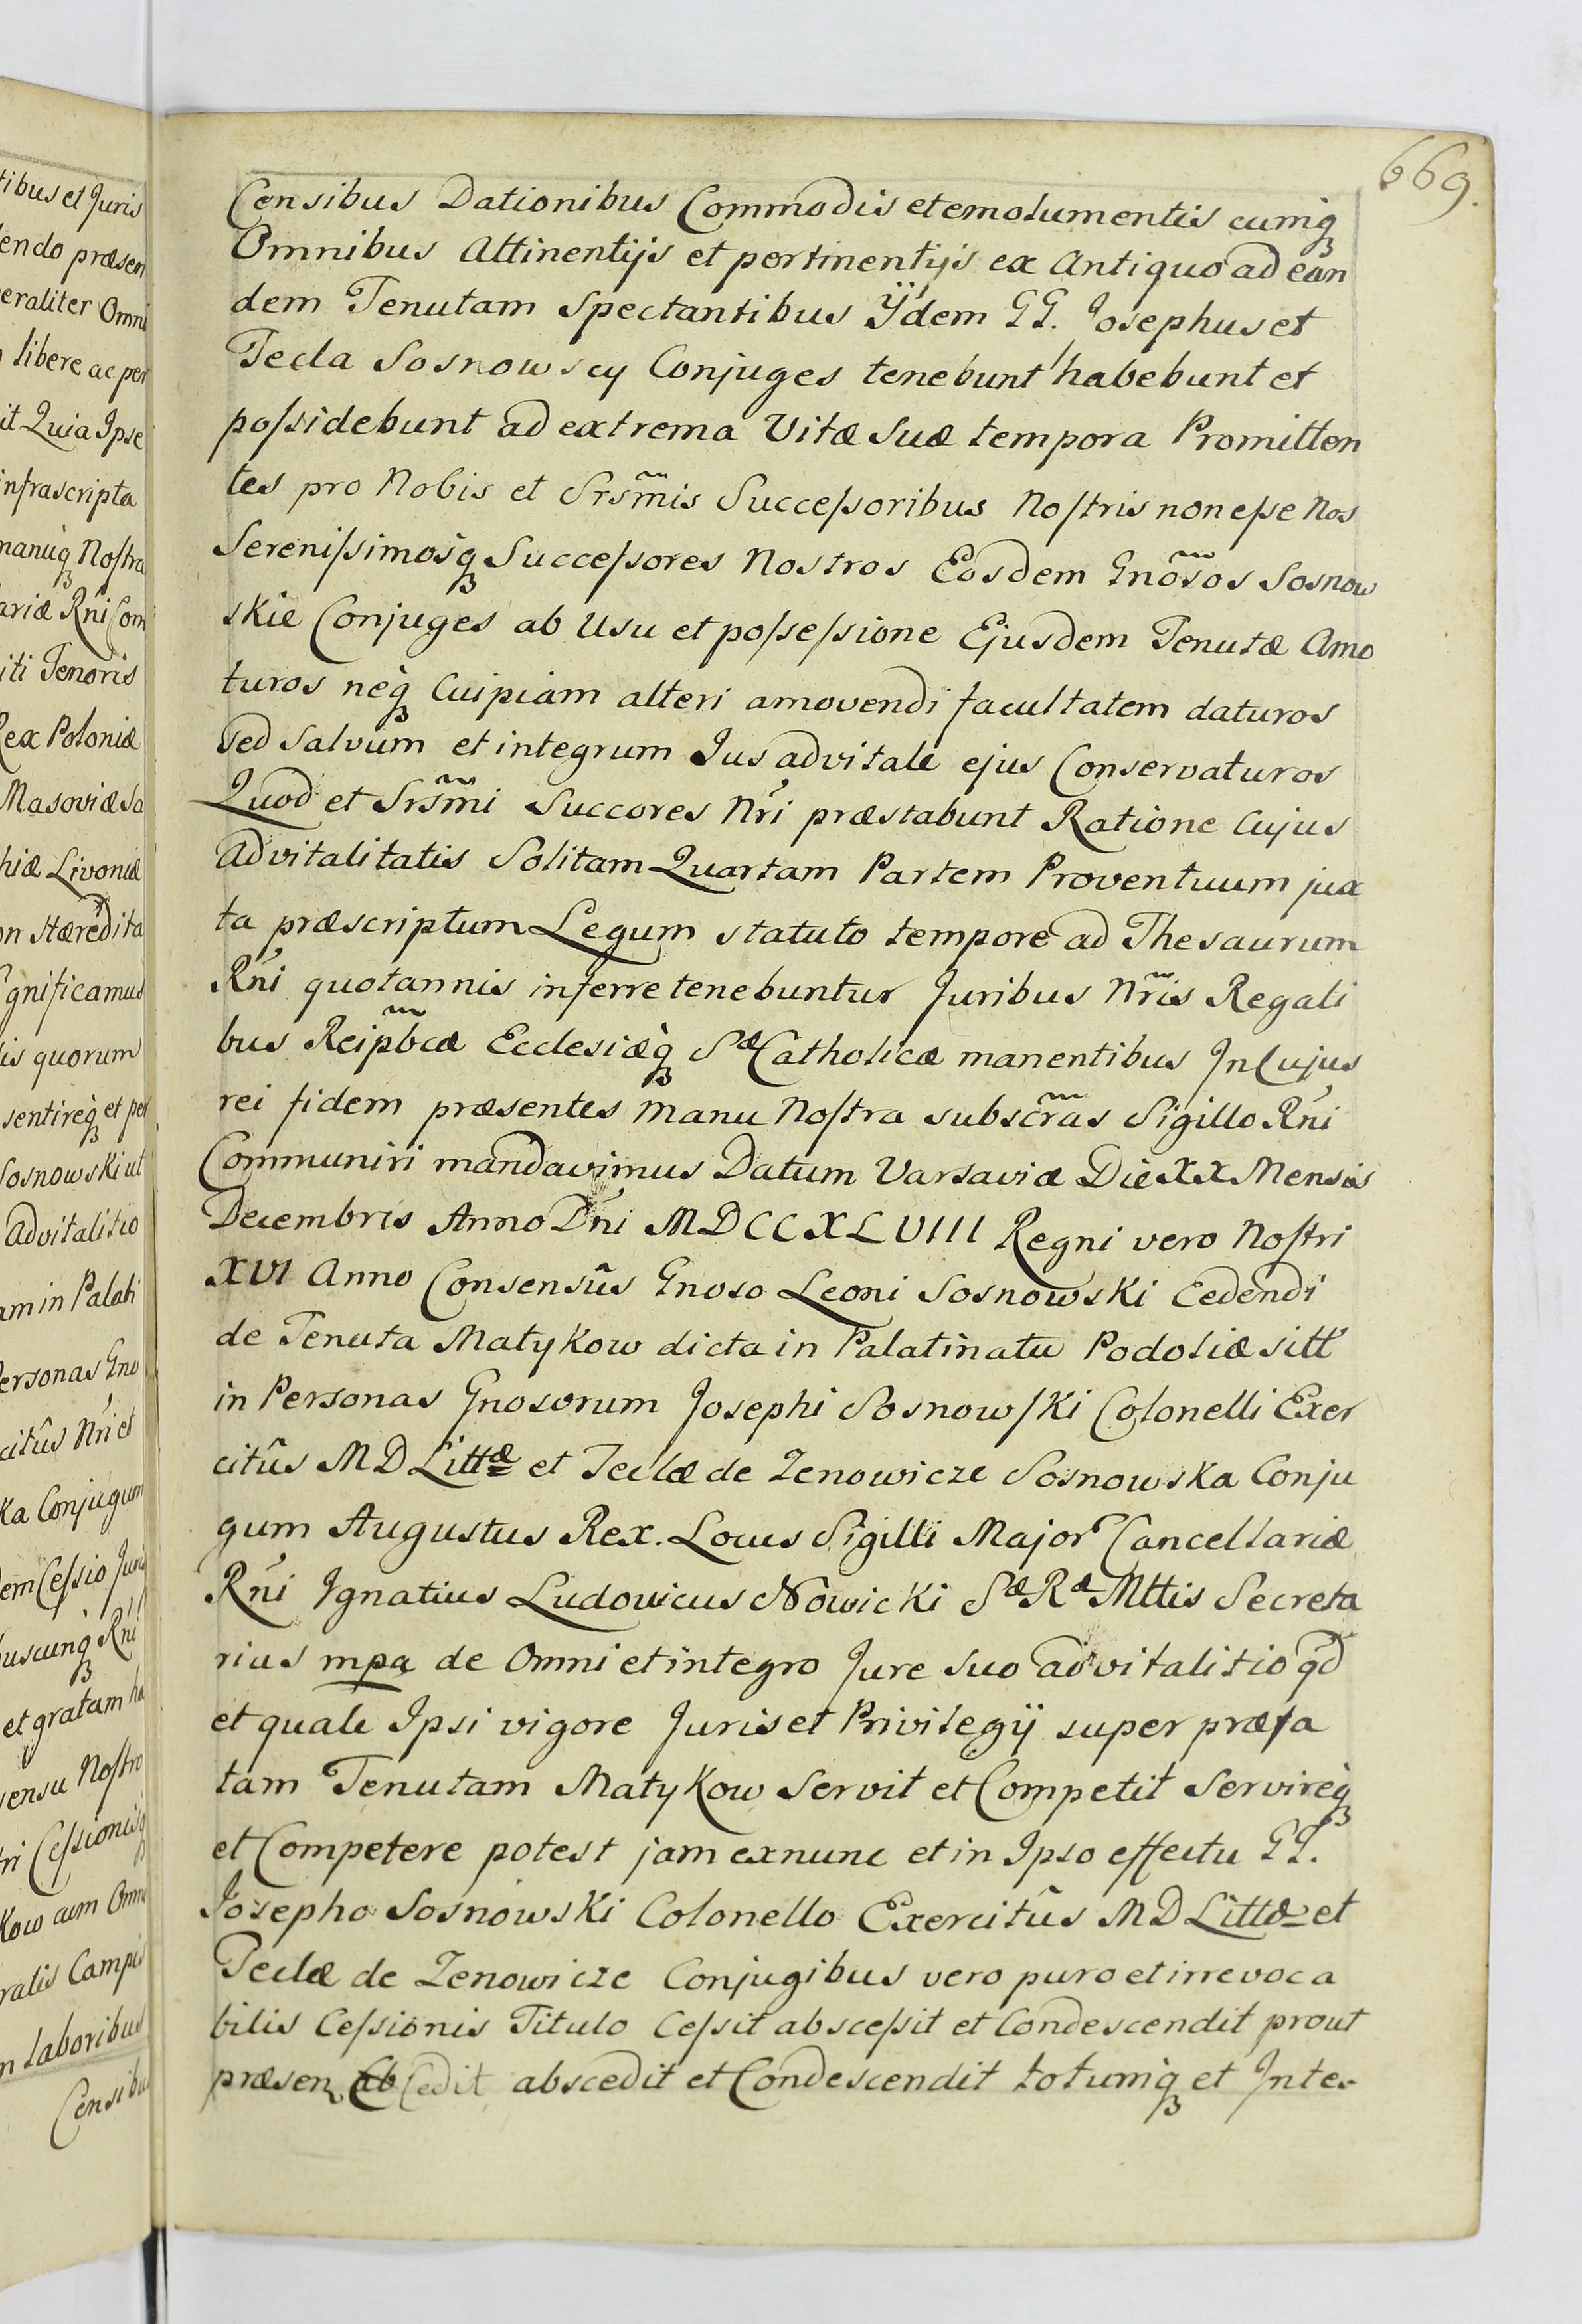 669.
Censibus Dationibus Commodis et emolumentis cumq́ꝫ
Omnibus Attinentijs et pertinentijs ex Antiquo ad ean
dem Tenutam Spectantibus Ijdem GG. Josephus et
Tecla Sosnowscy Conjuges tenebunt habebunt et
poſsidebunt ad extrema Vitæ Suæ tempora Promitten
tes pro Nobis et Srsm̃is Succeſsoribus Noſtris non eſse Nos
Sereniſsimosq́ꝫ Succeſsores Nostros Eosdem Gnõsos Sosnow
skie Conjuges ab Usu et poſseſsione Ejusdem Tenutæ Amo
turos neq́ꝫ Cuipiam alteri amovendi facultatem daturos
Sed Salvum et integrum Jus advitale ejus Conservaturos
Quod et Srsm̃i Succores Nri præstabunt Ratione Cujus
Advitalitatis Solitam Quartam Partem Proventuum jux
ta præscriptum Legum statuto tempore ad Thesaurum
Rńi quotannis inferre tenebuntur Juribus Nr̃is Regali
bus Reip̃bcæ Ecclesiæq́ꝫ Sæ Catholicæ manentibus In Cujus
rei fidem præsentes Manu Noſtra subscr̃as Sigillo Rńi
Communiri mandavimus Datum Varsaviæ Die XX Mensis
Decembris Anno Dńi MDCCXLVIII Regni vero Noſtri
XVI Anno Consensûs Gnoso Leoni Sosnowski Cedendi
de Tenuta Matykow dicta in Palatinatu Podoliæ sitt
in Personas Gnosorum Josephi Sosnowſki Colonelli Exer
citûs MD Littæ et Teclæ de Zenowicze Sosnowska Conju
gum Augustus Rex. Locus Sigilli Major Cancellariæ
Rńi Ignatius Ludovicus Nowicki Sæ Ræ Mttis Secreta
rius mpa de Omni et integro Jure suo advitalitio qd
et quale Ipsi vigore Juris et Privilegij super præfa
tam Tenutam Matykow Servit et Competit Servireq́ꝫ
et Competere potest jam exnunc et in Ipso effectu GG.
Josepho Sosnowski Colonello Exercitûs MD Littæ et
Teclæ de Zenowicze Conjugibus vero puro et irrevoca
bilis Ceſsionis Titulo Ceſsit absceſsit et Condescendit prout
præsen Cedit abscedit et Condescendit totumq́ꝫ et Inte-
tibus et Juris
endo præsen
eraliter Omni
libere ac per
it Quia Ipse
infrascripta
manuq́ꝫ Noſtra
ariæ Rńi Com
iti Tenoris
Rex Poloniæ
Masoviæ Sa
hiæ Livoniæ
on Hæredita
gnificamus
lis quorum
sentireq́ꝫ et per
Sosnowski ut
Advitalitio
am in Palati
ersonas Gno
citûs Nri et
ka Conjugum
dem Ceſsio Juris
uscunq́ꝫ Rńi
et gratam ha
sensu Noſtro
tri Ceſsionisq́ꝫ
kow cum Omni
ralis Campis
n laboribus
Censibus